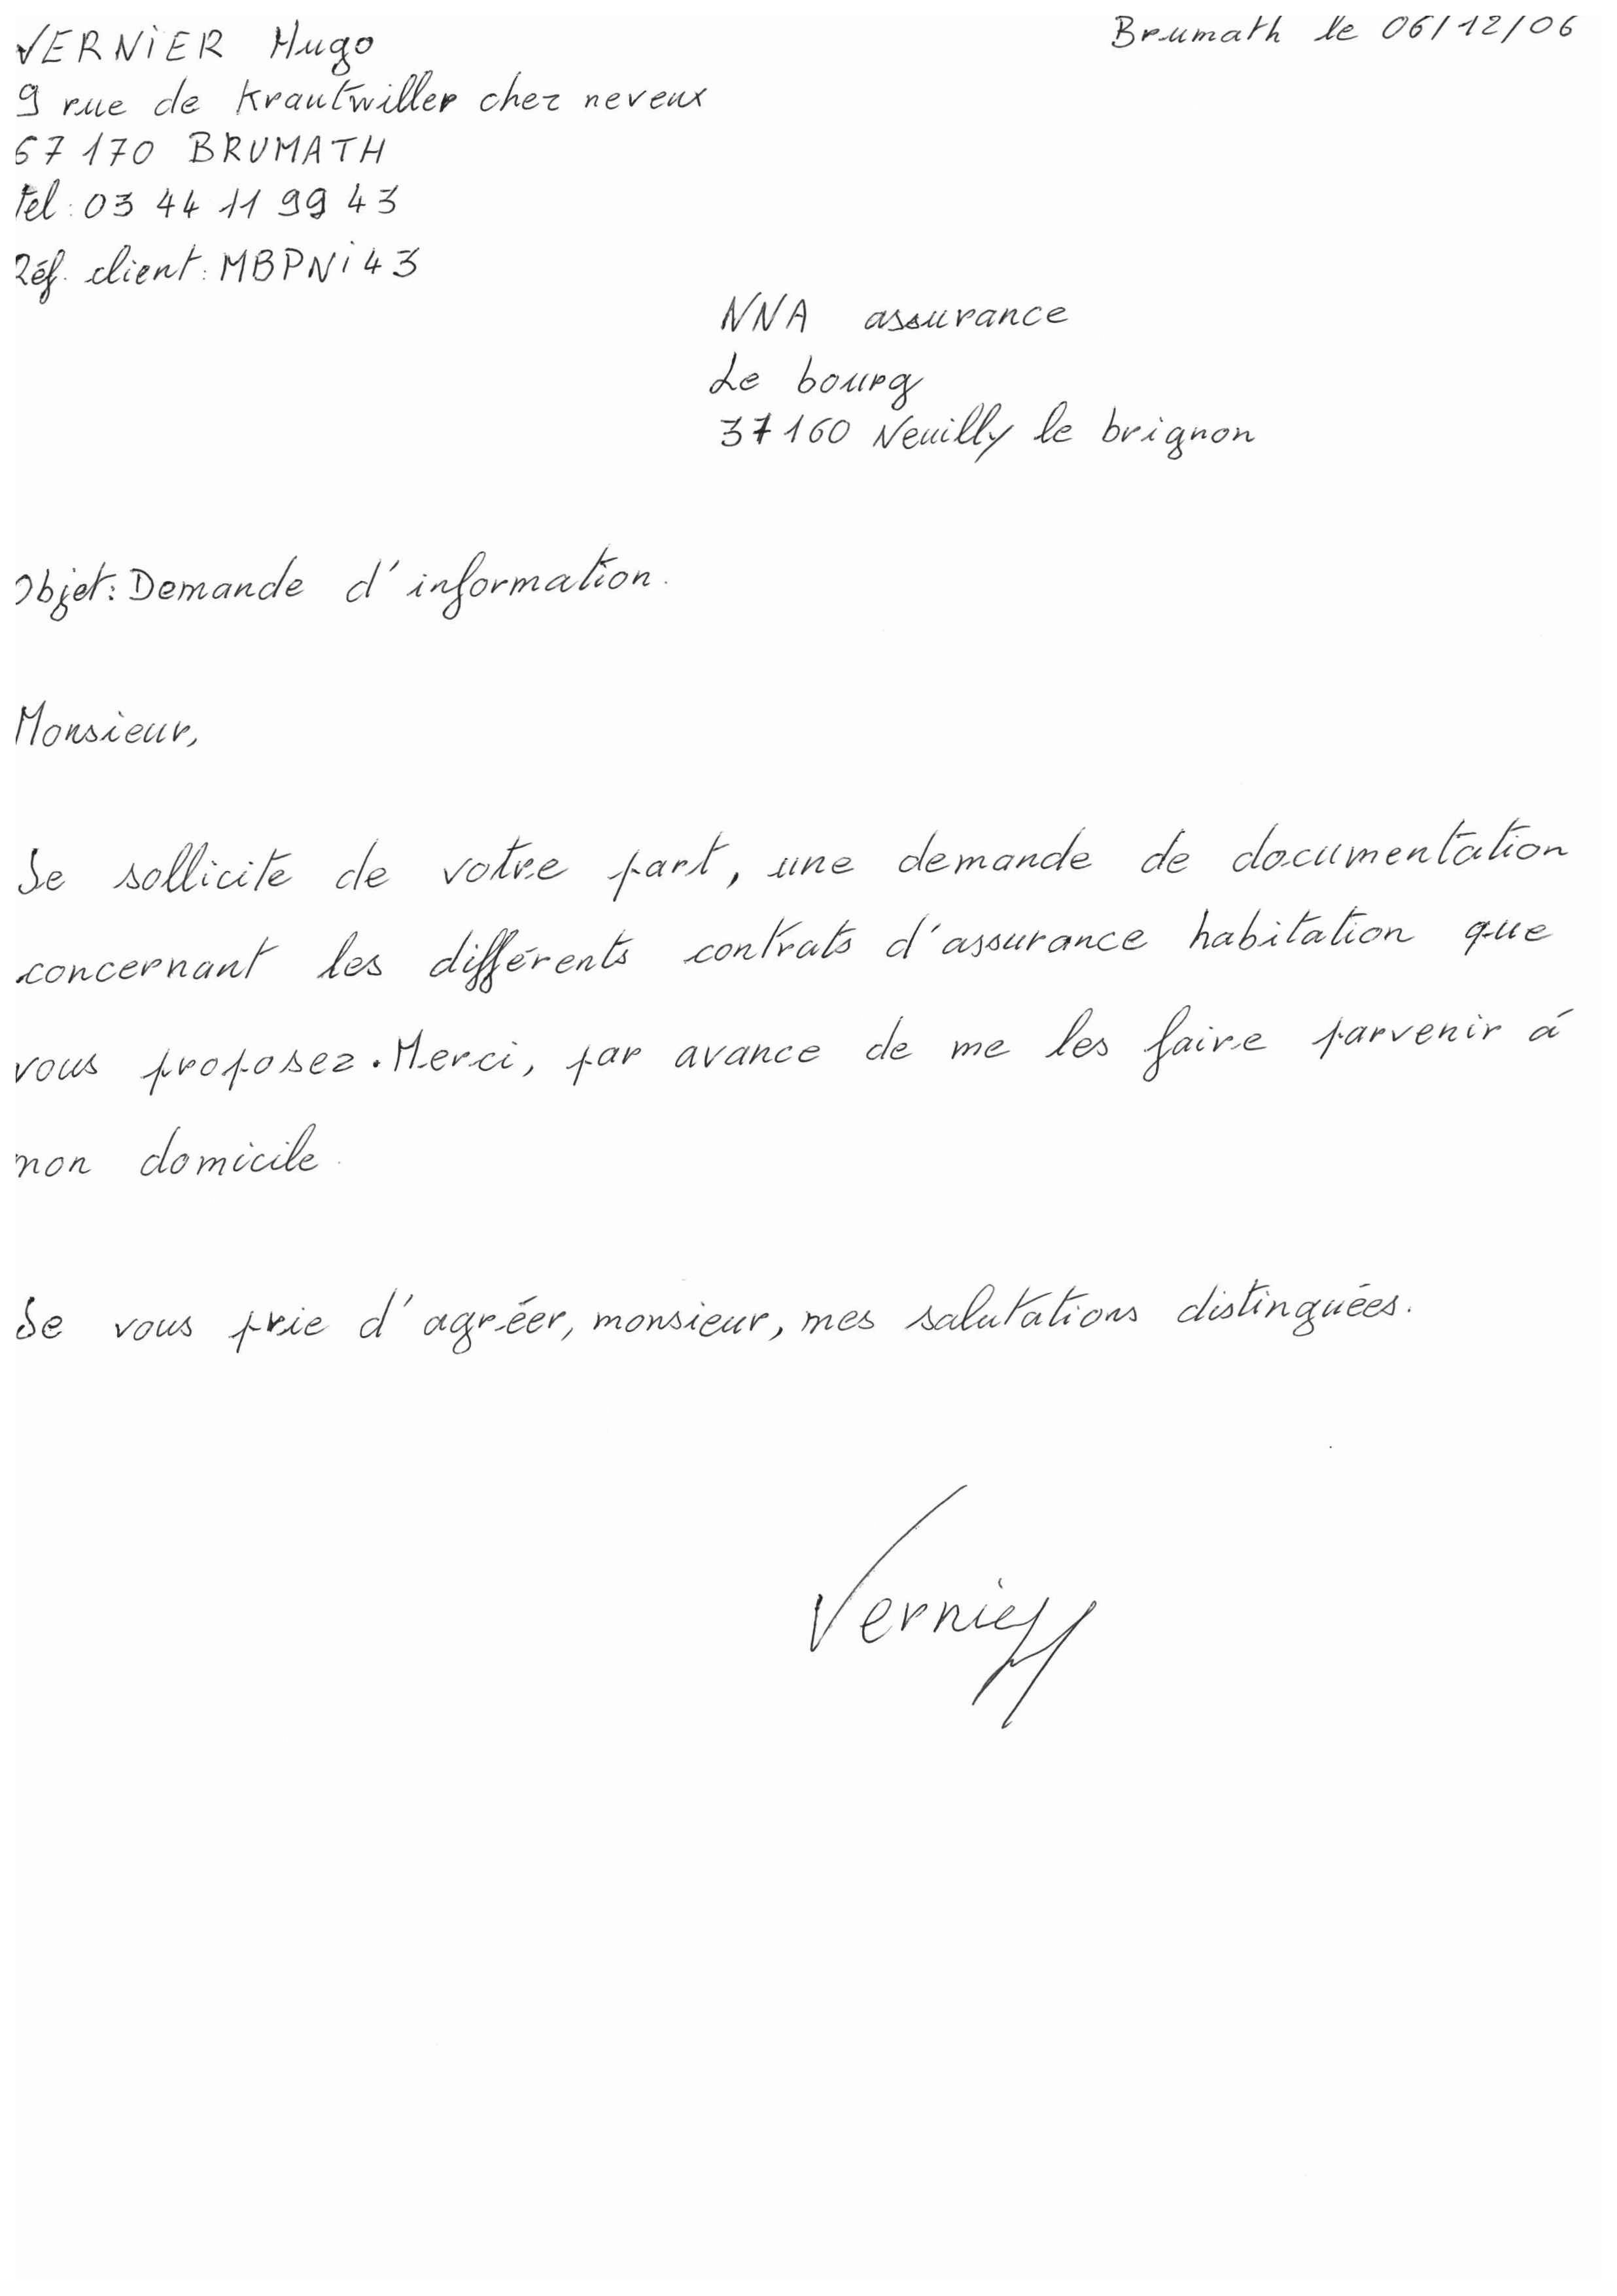 VERNIER Hugo
Brumath le 06/12/06
9 rue de Krautwiller chez neveux
67170 BRUMATH
tel : 03 44 11 99 43
Réf. client : MBPNi43
NNA assurance
Le bourg
37160 Neuilly le brignon
Objet : Demande d'information.
Monsieur,
Je sollicite de votre part, une demande de documentation
concernant les différents contrats d'assurance habitation que
vous proposez. Merci, par avance de me les faire parvenir à
mon domicile.
Je vous prie d'agréer, monsieur, mes salutations distinguées.
Vernier